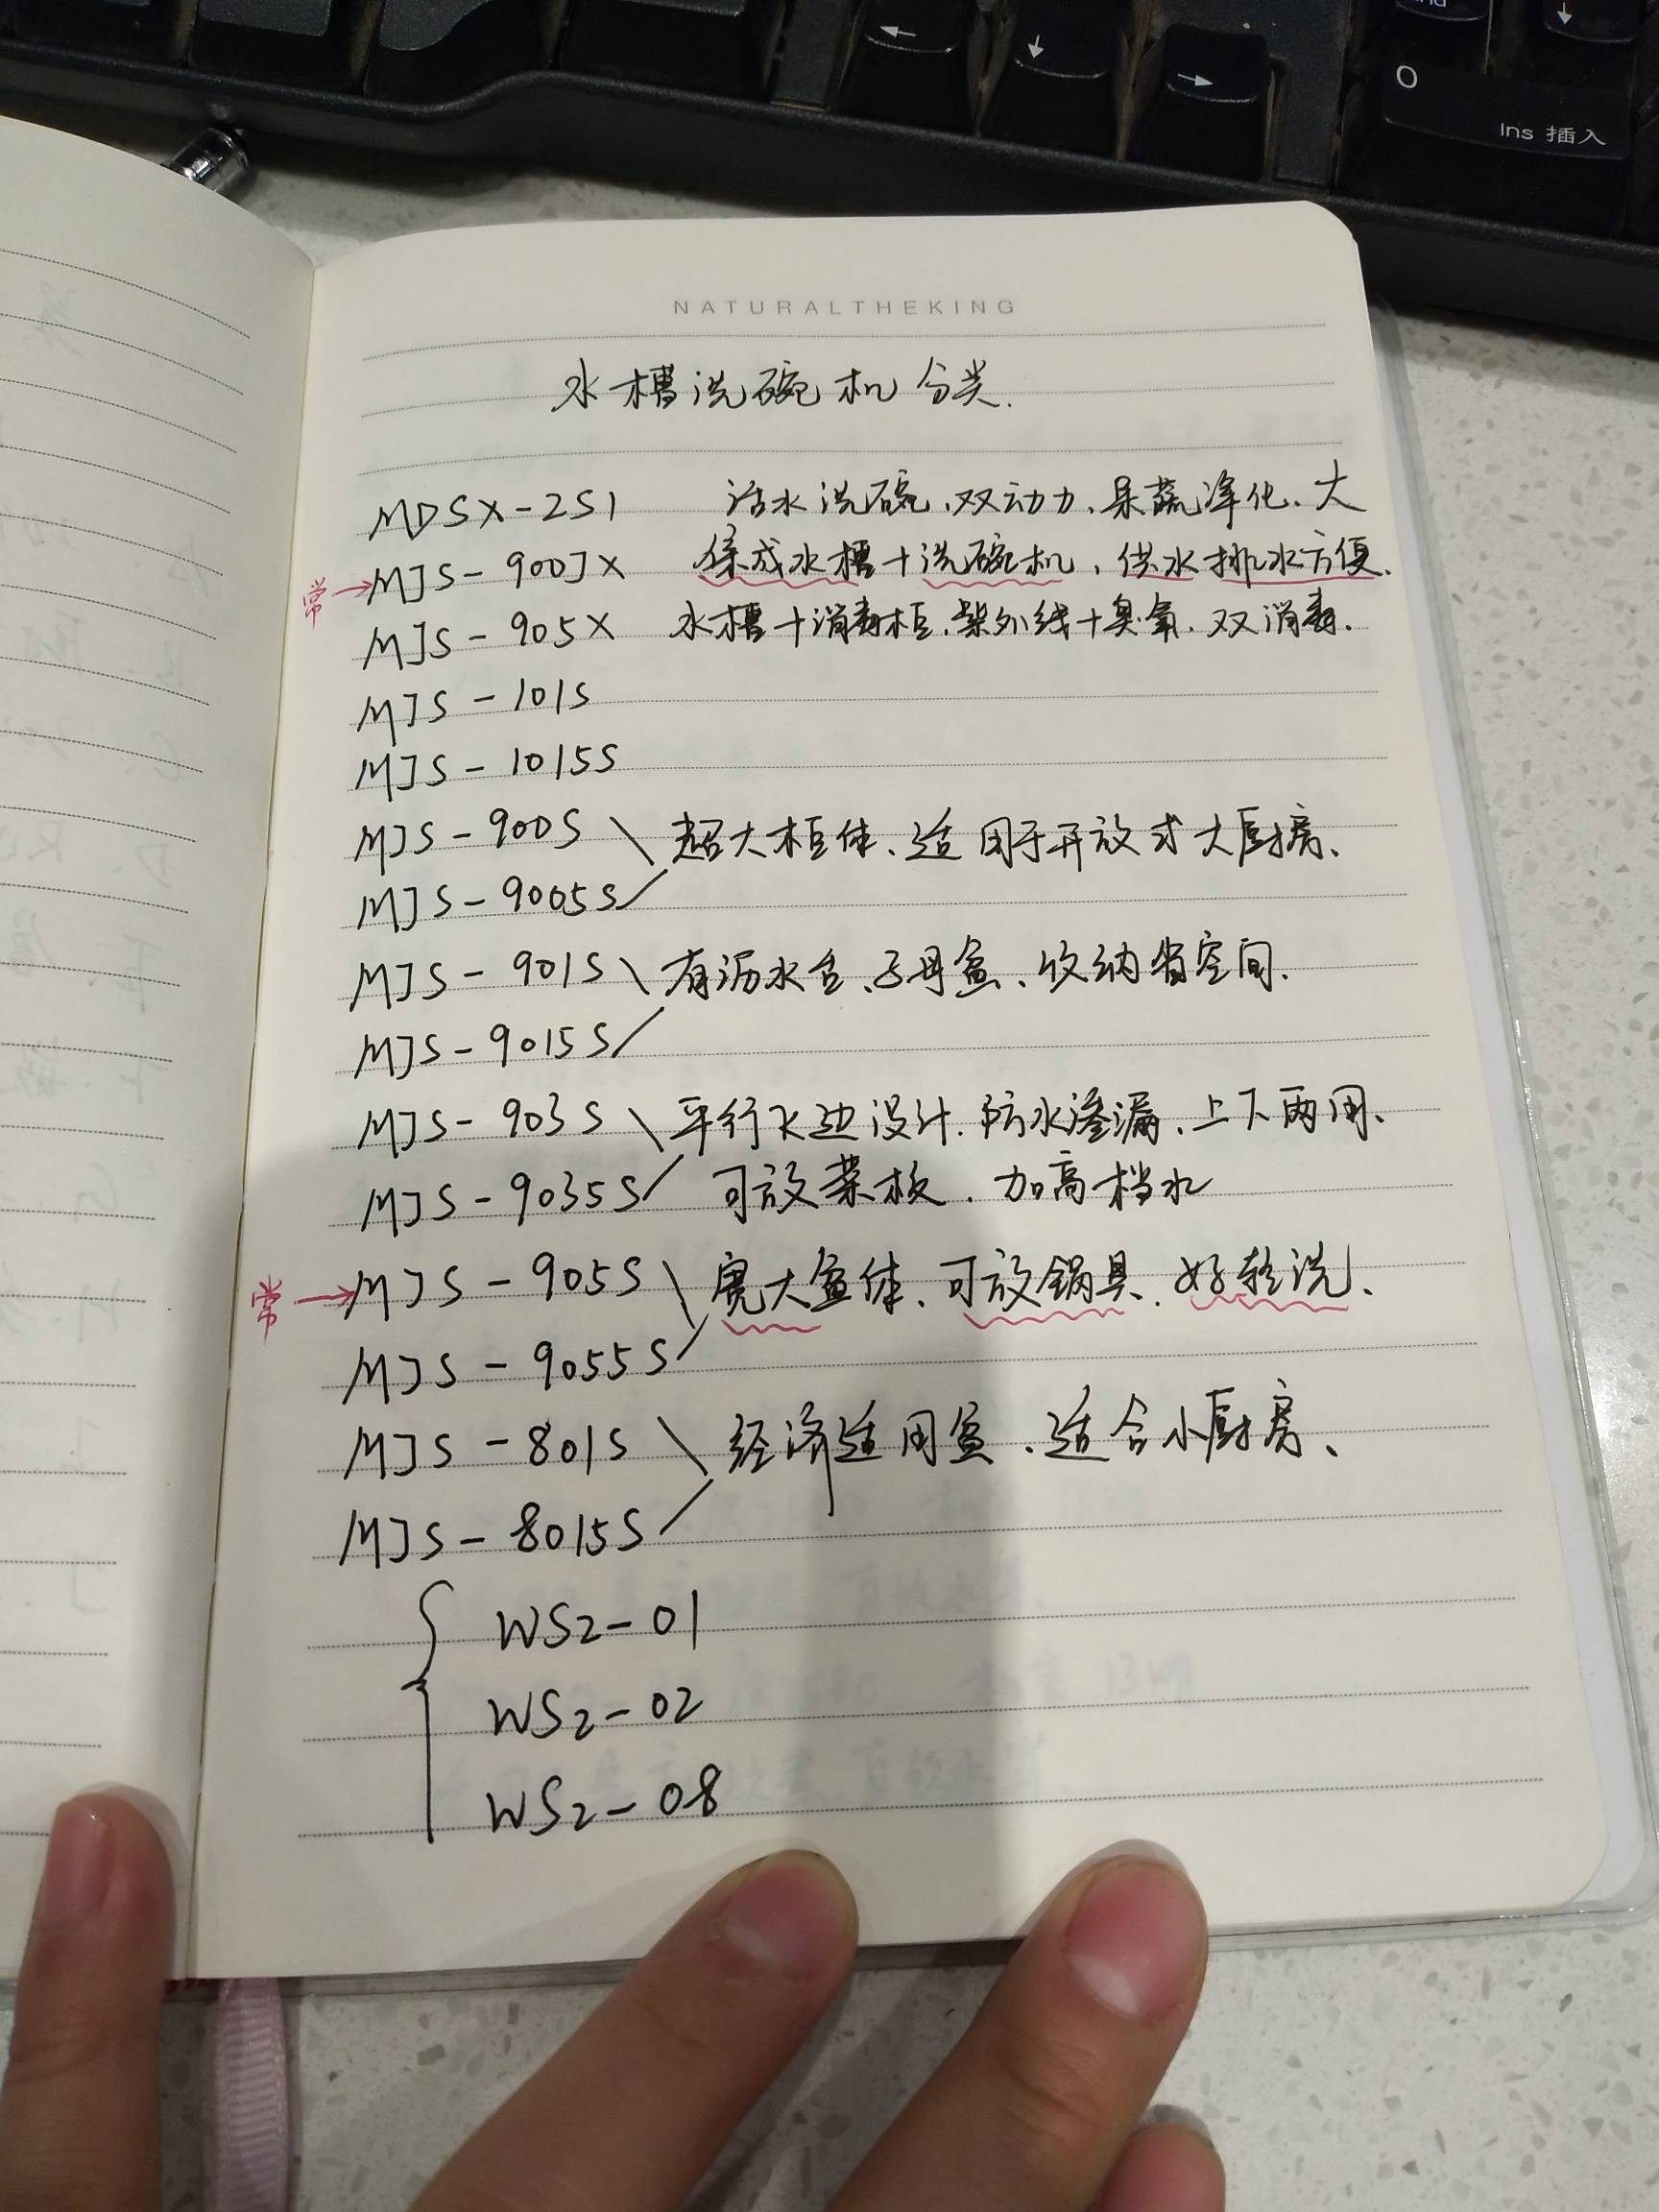 Ins 插入
NATURALTHEKING
水槽洗碗机分类.
MDSX-2S1 活水洗碗、双动力、果蔬净化、大
常→MJS-900JX 集成水槽+洗碗机、供水排水方便.
MJS-905X 水槽+消毒柜、紫外线+臭氧. 双消毒.
MJS-101S
MJS-1015S
MJS-900S 超大柜体、适用于开放式大厨房、
MJS-9005S
MJS-901S 有沥水台、子母盆、收纳省空间.
MJS-9015S
MJS-903S 平行飞边设计. 防水渗漏、上下两用、
MJS-9035S 可放菜板. 加高档水
常→MJS-905S 宽大盆体、可放锅具. 好轻洗、
MJS-9055S
MJS-801S 经济适用盆、适合小厨房、
MJS-8015S
WS2-01
WS2-02
WS2-08